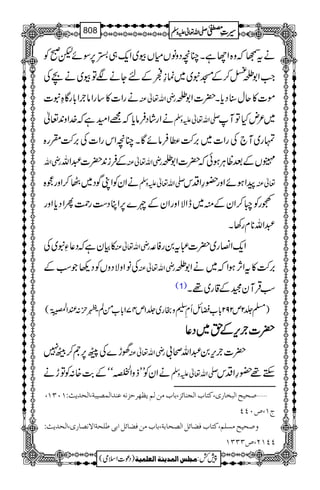 سیرتِ مصطفیٰ صلی اللہ تعالیٰ علیہ وسلم 808
نے یہ سمجھا کہ وہ اچھا ہے۔ چنانچہ دونوں میاں بیوی ایک ہی بستر پر سوئے لیکن صبح کو
جب ابو طلحہ غسل کر کے مسجد نبوی میں نمازِ فجر کے لئے جانے لگے تو بیوی نے بچے کی
موت کا حال سنا دیا۔ حضرت ابو طلحہ رضی اللہ تعالیٰ عنہ نے رات کا سارا ماجرا بارگاہِ نبوت
میں عرض کیا تو آپ صلی اللہ تعالیٰ علیہ وسلم نے ارشاد فرمایا کہ مجھے امید ہے کہ خداوند تعالیٰ
تمہاری آج کی رات میں برکت عطا فرمائے گا۔ چنانچہ اس رات کی برکت مقررہ
مہینوں کے بعد ظاہر ہوئی کہ حضرت ابو طلحہ رضی اللہ تعالیٰ عنہ کے فرزند حضرت عبد اللہ رضی اللہ
تعالیٰ عنہ پیدا ہوئے اور حضور اقدس صلی اللہ تعالیٰ علیہ وسلم نے ان کو اپنی گود میں بٹھا کر اور عجوہ
کھجور کو چبا کر ان کے منہ میں ڈالا اور ان کے چہرے پر اپنا دست رحمت پھرا دیا اور
عبد اللہ نام رکھا۔
ایک انصاری حضرت عبایہ بن رفاعہ رضی اللہ تعالیٰ عنہ کا بیان ہے کہ دعاءِ نبوی کی
برکت کا یہ اثر ہوا کہ میں نے ابو طلحہ رضی اللہ تعالیٰ عنہ کی نو اولادوں کو دیکھا جو سب کے
سب قرآن مجید کے قاری تھے۔ (1)
(مسلم جلد ۲ ص ۲۹۲ باب فضائل ام سلیم و بخاری جلد ۱ ص ۱۷۴ باب من لم یظہر حزنہ عند المصیبۃ)
حضرت جریر کے حق میں دعا
حضرت جریر بن عبد اللہ صحابی رضی اللہ تعالیٰ عنہ گھوڑے کی پیٹھ پر جم کر بیٹھ نہیں
سکتے تھے حضور اقدس صلی اللہ تعالیٰ علیہ وسلم نے ان کو ’’ذوالخلصہ‘‘ کے بت خانہ کو توڑنے
......صحیح البخاری، کتاب الجنائز، باب من لم یظهر حزنه عند المصیبة، الحدیث: ۱۳۰۱،
ج۱، ص۴۴۰
وصحیح مسلم، کتاب فضائل الصحابة، باب من فضائل ابی طلحة الانصاری، الحدیث:
۲۱۴۴، ص۱۳۳۳
پیش کش: مجلس المدینۃ العلمیۃ (دعوت اسلامی)